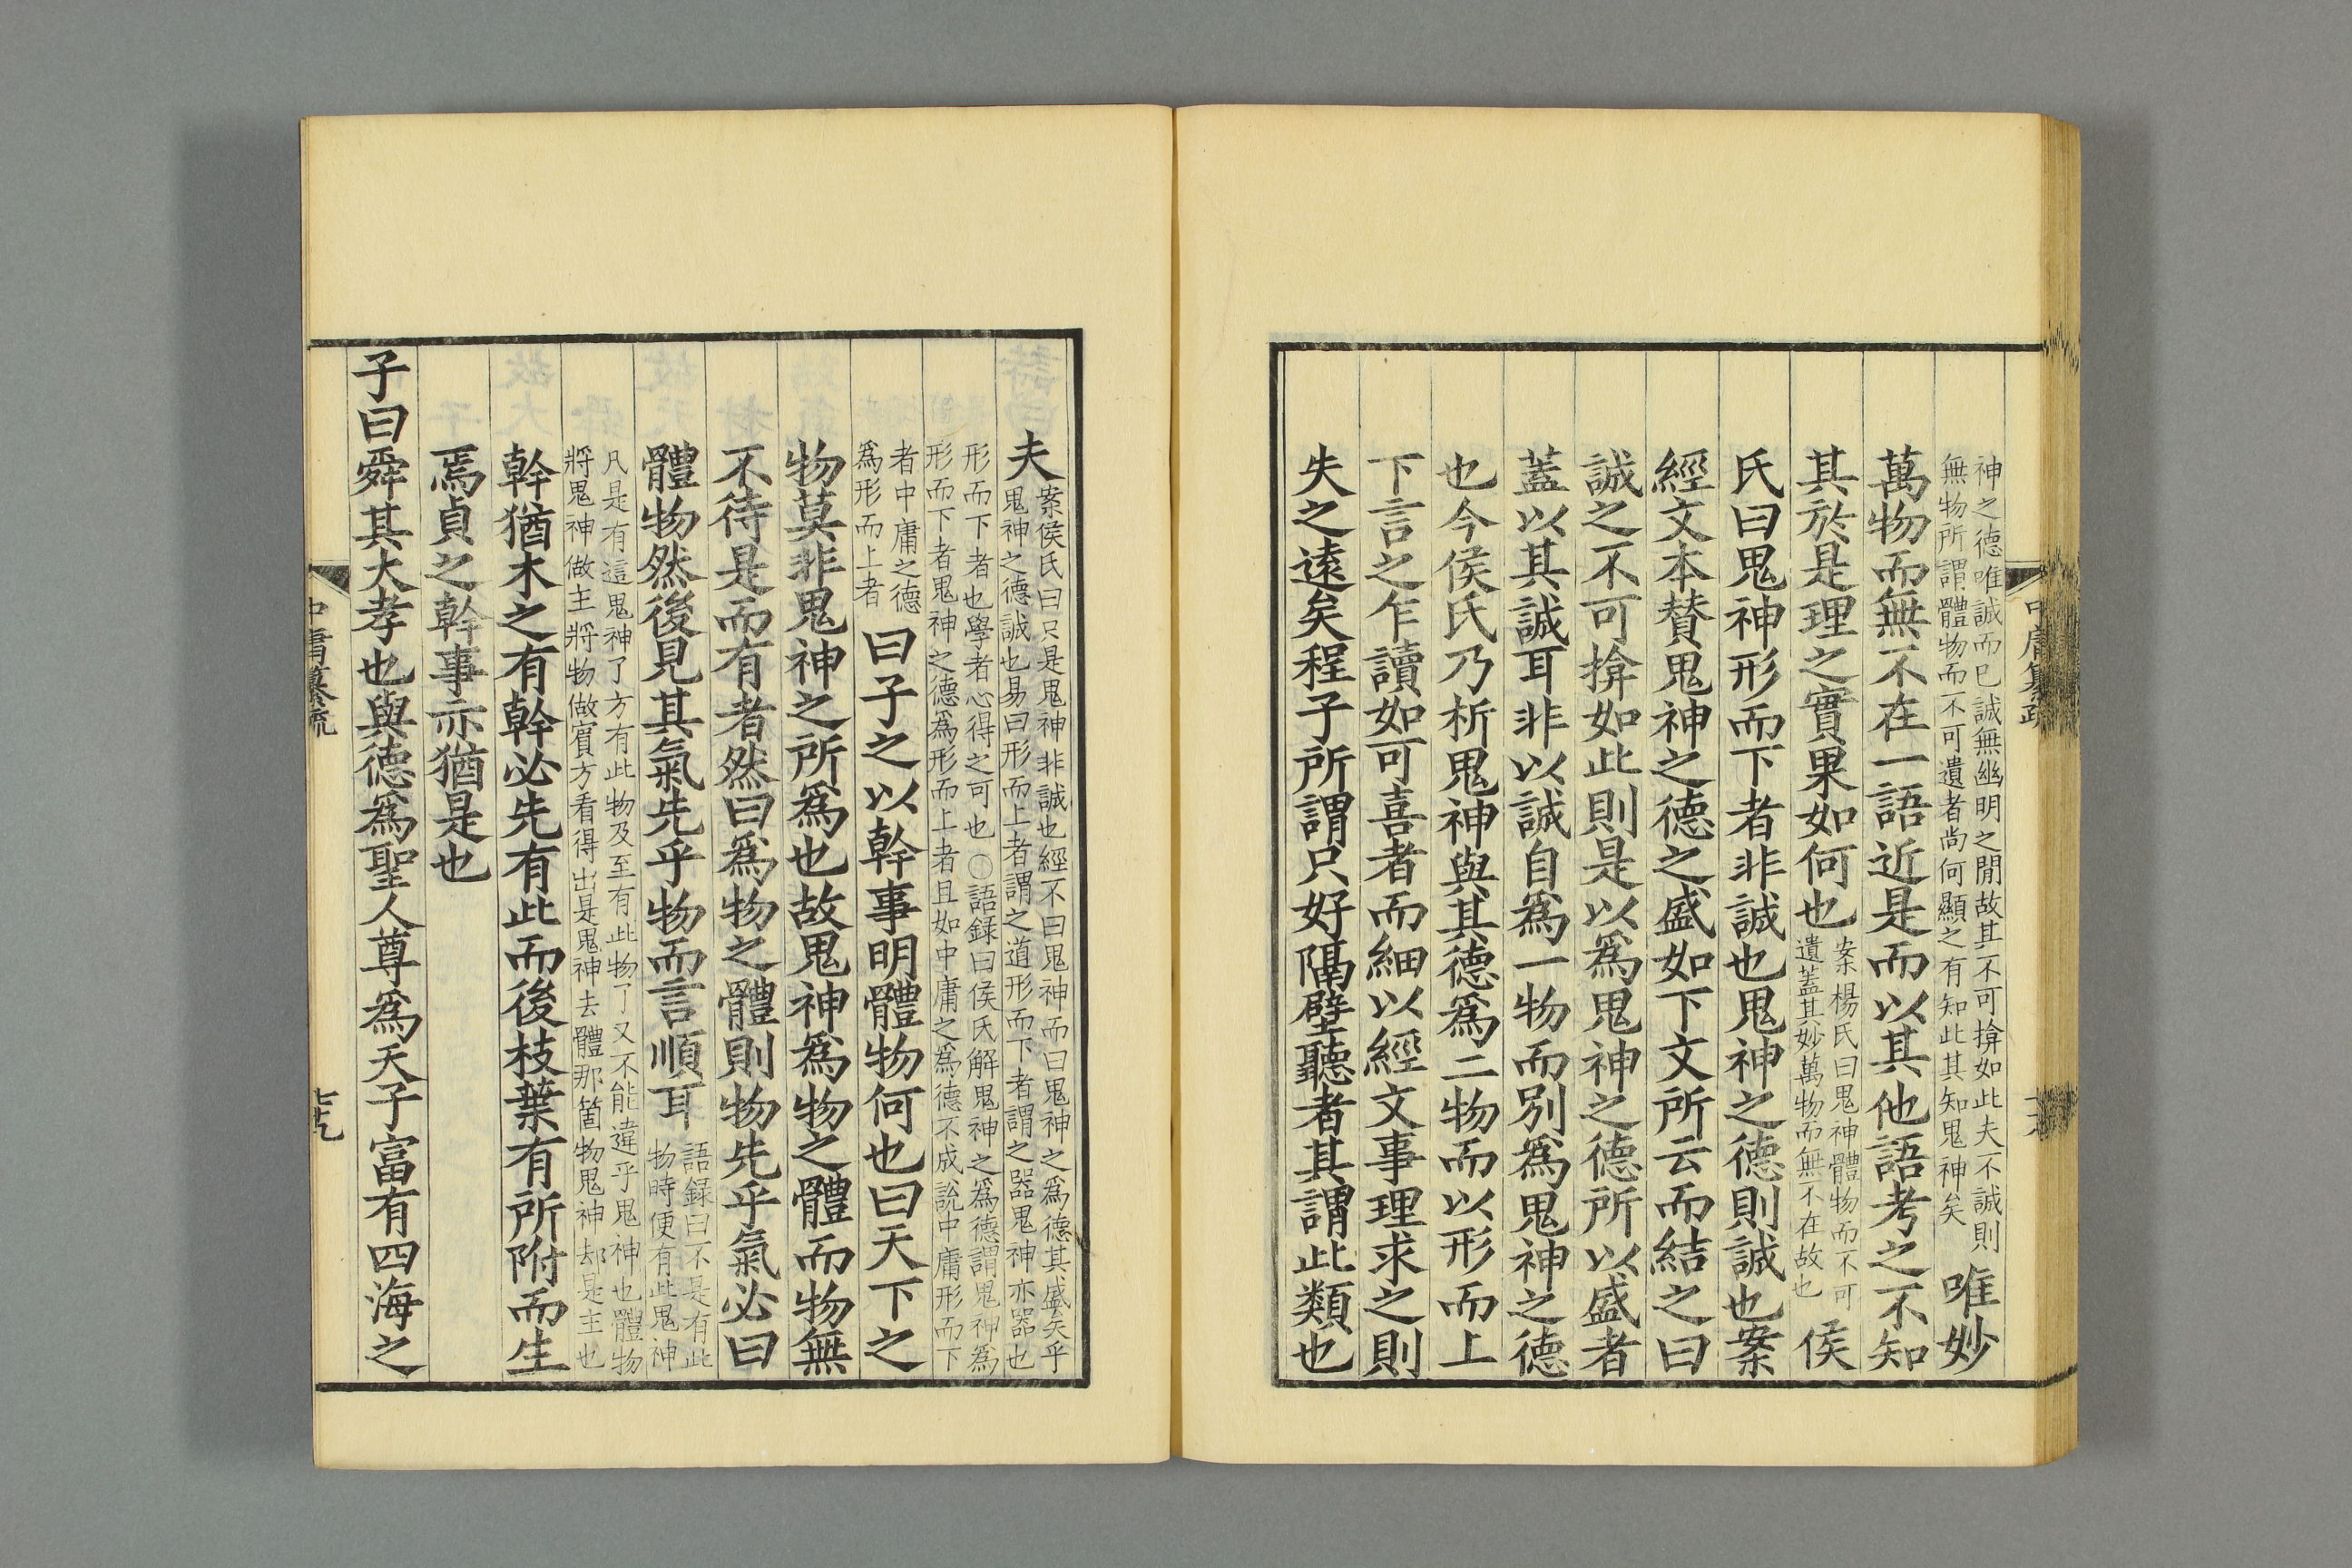 神之德唯誠而已誠無幽明之閒故其不可揜如此夫不誠則
無物所謂體物而不可遺者尚何顯之有知此其知鬼神矣
唯妙
萬物而無不在一語近是而以其他語考之不知
其於是理之實果如何也
案楊氏曰鬼神體物而不可
遺蓋其妙萬物而無不在故也
侯
氏曰鬼神形而下者非誠也鬼神之德則誠也案
經文本贊鬼神之德之盛如下文所云而結之曰
誠之不可揜如此則是以爲鬼神之德所以盛者
蓋以其誠耳非以誠自爲一物而別爲鬼神之德
也今侯氏乃析鬼神與其德爲二物而以形而上
下言之乍讀如可喜者而細以經文事理求之則
失之遠矣程子所謂只好隔壁聽者其謂此類也
中庸纂疏
夫
案侯氏曰只是鬼神非誠也經不曰鬼神而曰鬼神之爲德其盛矣乎
鬼神之德誠也易曰形而上者謂之道形而下者謂之器鬼神亦器也
形而下者也學者心得之可也〇語録曰侯氏解鬼神之爲德謂鬼神爲
形而下者鬼神之德爲形而上者且如中庸之爲德不成說中庸形而下
者中庸之德
爲形而上者
曰子之以幹事明體物何也曰天下之
物莫非鬼神之所爲也故鬼神爲物之體而物無
不待是而有者然曰爲物之體則物先乎氣必曰
體物然後見其氣先乎物而言順耳
語録曰不是有此
物時便有此鬼神
凡是有這鬼神了方有此物及至有此物了又不能違乎鬼神也體物
將鬼神做主將物做賓方看得出是鬼神去體那箇物鬼神却是主也
幹猶木之有幹必先有此而後枝葉有所附而生
焉貞之幹事亦猶是也
子曰舜其大孝也與德爲聖人尊爲天子富有四海之
中庸纂疏